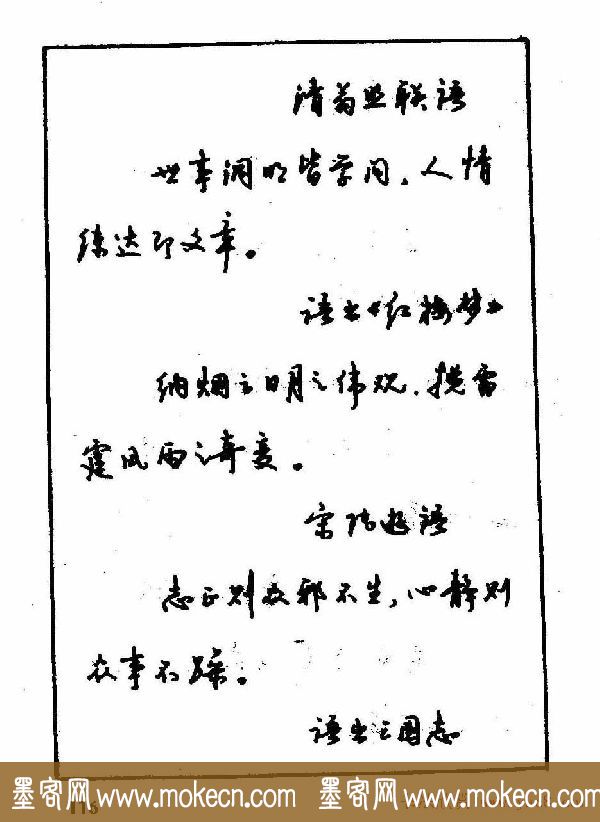 清翁照联语
世事洞明皆学问，人情
练达即文章。
语出《红梅梦》
纳烟云日月之伟观，揽雷
霆风雨之奇变。
宋陆游语
志正则众邪不生，心静则
众事不躁。
语出三国志
116
墨客网 www.mokecn.com 墨客网 www.mokecn.com